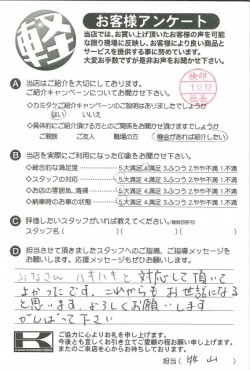 軽
お客様アンケート
当店では、お買い上げ頂いたお客様の声を可能
な限り現場に反映し、お客様により良い商品と
サービスを提供する事に努めています。
大変お手数ですが是非お声をお聞かせ下さい。
検印
1.12.12
A 当店はご紹介を大切にしております。
ご紹介キャンペーンについてお聞かせ下さい。
◇カミタケご紹介キャンペーンのご説明はありましたでしょうか
はい いいえ
◇具体的にご紹介頂ける方とのご関係をお聞かせ頂けますでしょうか
ご親族 ご友人 職場の方 機会があれば紹介したい
B 当店を実際にご利用になった印象をお聞かせ下さい
◇総合的な満足度 5.大満足 4.満足 3.ふつう 2.やや不満 1.不満
◇スタッフの対応 5.大満足 4.満足 3.ふつう 2.やや不満 1.不満
◇お店の雰囲気、清掃 5.大満足 4.満足 3.ふつう 2.やや不満 1.不満
◇納車時のお車の状態 5.大満足 4.満足 3.ふつう 2.やや不満 1.不満
C 評価したいスタッフがいれば教えてください。(複数回答可)
スタッフ名( )( )( )
D 担当させて頂きましたスタッフへのご指摘、ご指導メッセージを
お願いします。応援メッセージもぜひお願いします。
みなさん ハキハキと 対応して頂いて
よかったです。これからも お世話になる
と思います。よろしくお願いします
がんばって下さい
K
ご協力に心よりお礼を申し上げます。
今後とも宜しくお引き立てご愛顧のお願い申し上げます。
またのご来店を心からお待ちしております。
担当( 牧山 )